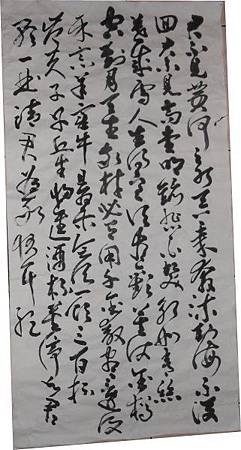 君不見黄河之水天上来奔流到海不復
回君不見高堂明鏡悲白髮朝如青絲
暮成雪人生得意須盡歡莫使金樽
空對月天生我材必有用千金散盡還復
来烹羊宰牛且為樂會須一飲三百杯
岑夫子丹丘生將進酒杯莫停與君
歌一曲請君為我傾耳聽